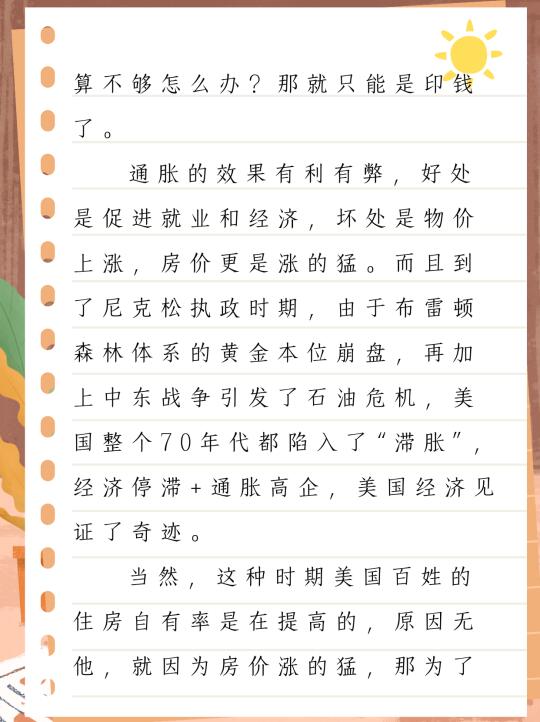 算不够怎么办？那就只能是印钱
了。
通胀的效果有利有弊，好处
是促进就业和经济，坏处是物价
上涨，房价更是涨的猛。而且到
了尼克松执政时期，由于布雷顿
森林体系的黄金本位崩盘，再加
上中东战争引发了石油危机，美
国整个70年代都陷入了“滞胀”，
经济停滞+通胀高企，美国经济见
证了奇迹。
当然，这种时期美国百姓的
住房自有率是在提高的，原因无
他，就因为房价涨的猛，那为了